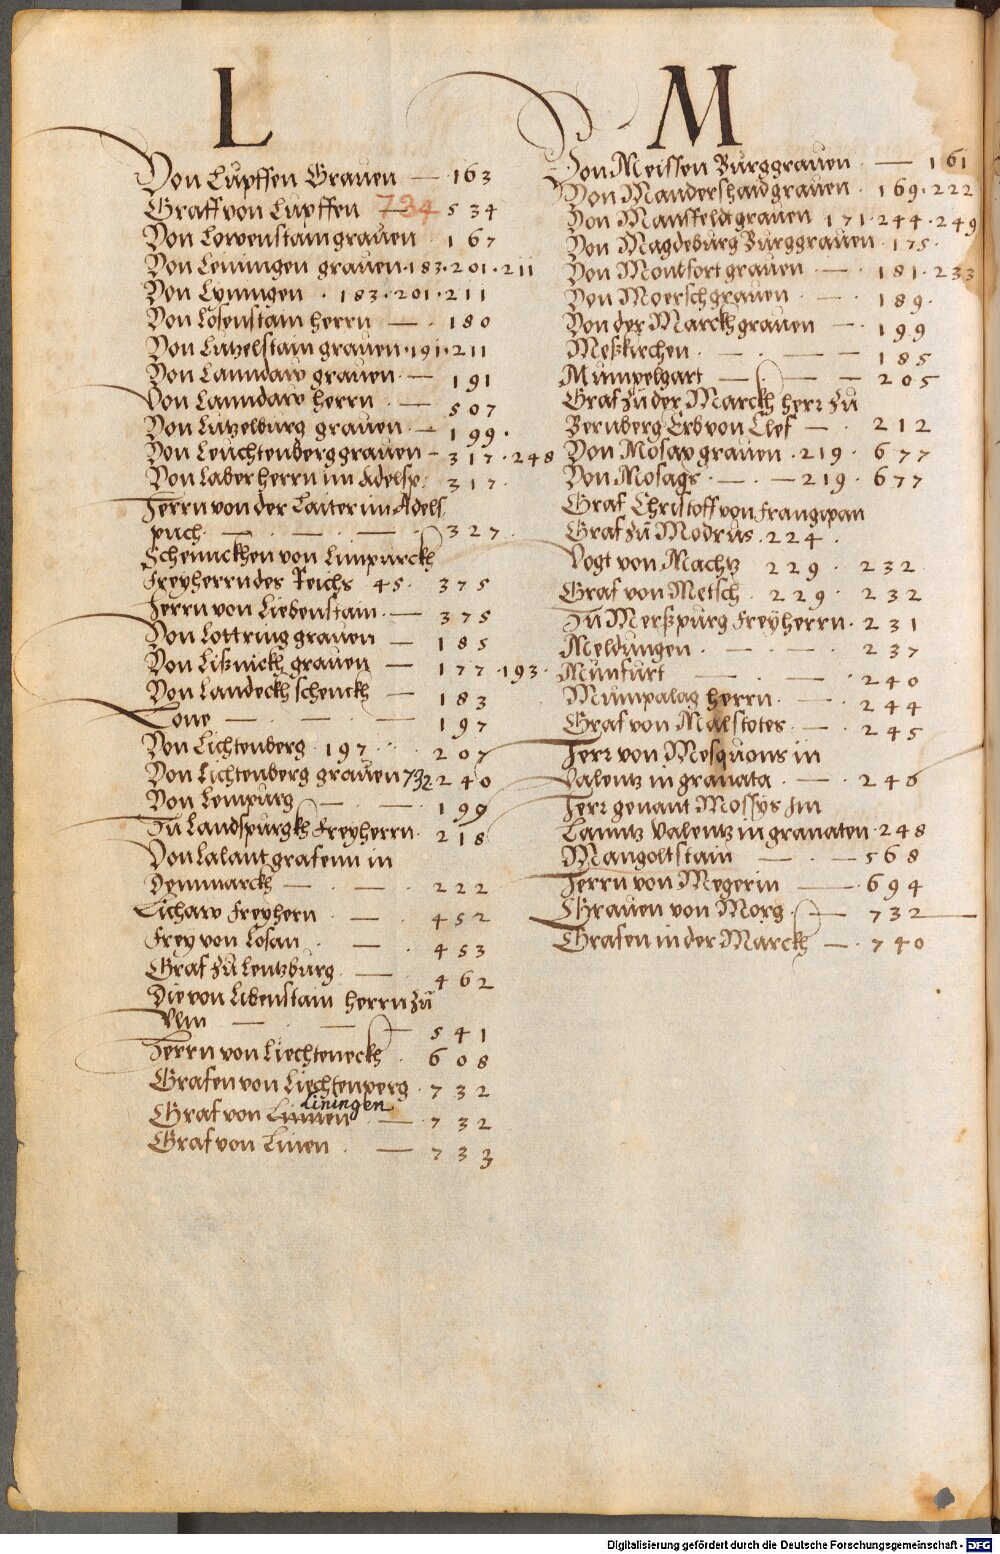 L
Von Lupffen Grauen — 163
Graff von Lupffen 734 534
Von Lowenstain grauen 167
Von Leiningen grauen · 183 · 201 · 211
Von Lyningen · 183 · 201 · 211
Von Losenstain herrn — · 180
Von Lutzelstain grauen · 191 · 211
Von Lanndaw grauen · — 191
Von Lanndaw herrn · — 507
Von Lutzelburg grauen · — 199 ·
Von Leuchtenberg grauen – 317 · 248
Von Laber herrn im Adelsp: 317 ·
Herrn von der Laiter im Adels
puch · — · — · — 327 ·
Schennckhen von Limpurckh
Freyherrn des Reichs 45 · 375
Herrn von Liebenstain · — 375
Von Lottring grauen — 185
Von Lißnickh grauen — 177 · 193 ·
Von Landeckh schenckh — 183
Lone — · — · — 197
Von Lichtenberg · 197 · · · 207
Von Lichtenberg grauen 732 240
Von Lempurg — · — 199
Zu Landspurgkh Freyherrn · 218
Von Lalant grafenn in
Dennmarckh — · — · 222
Lichaw Freyhern · — · 452
Frey von Losan · — · 453
Graf zu Lentzburg · — · 462
Die von Libenstain herrn zu
Ulm — · — · — 541
Herrn von Liechteneckh · 608
Grafen von Liechtenperg · 732
Liningen
Graf von Linnen · — · 732
Graf von Linen · — · 733
M
Von Meissen Burggrauen · — 161
Von Mandershaid grauen · 169 · 222
Von Mansfeldt grauen 171 · 244 · 249
Von Magdeburg Burggrauen · 175 ·
Von Montfort grauen · — · 181 · 233
Von Moersch grauen · — · 189 ·
Von der Marckh grauen — · 199
Meßkirchen · — · — — 185
Mumpelgart — · — — 205
Graf zu der Marckh herr zu
Bernberg Erb von Clef — · 212
Von Mosax grauen · 219 · 677
Von Mosagr · — · — 219 · 677
Graf Christoff von Frangipan
Graf zu Modrus · 224 ·
Vogt von Machtz 229 · 232
Graf von Metsch · 229 · 232
Zu Merßpurg Freyherrn · 231
Meldungen · — · — · 237
Munfurt — · — · 240
Mumpalag herrn · — · 244
Graf von Malstotes · — · 245
Herr von Mesquons in
Valentz in granata · — · 246
Herr genant Mossys Im
Lanntz Valentz in granaten · 248
Mangoltstain — · — 568
Herrn von Megerin — · 694
Grauen von Morg · — 732
Grafen in der Marckh — · 740
Digitalisierung gefördert durch die Deutsche Forschungsgemeinschaft - DFG